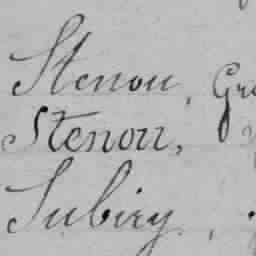 Stenou, Gr
Stenou,
Subiry,